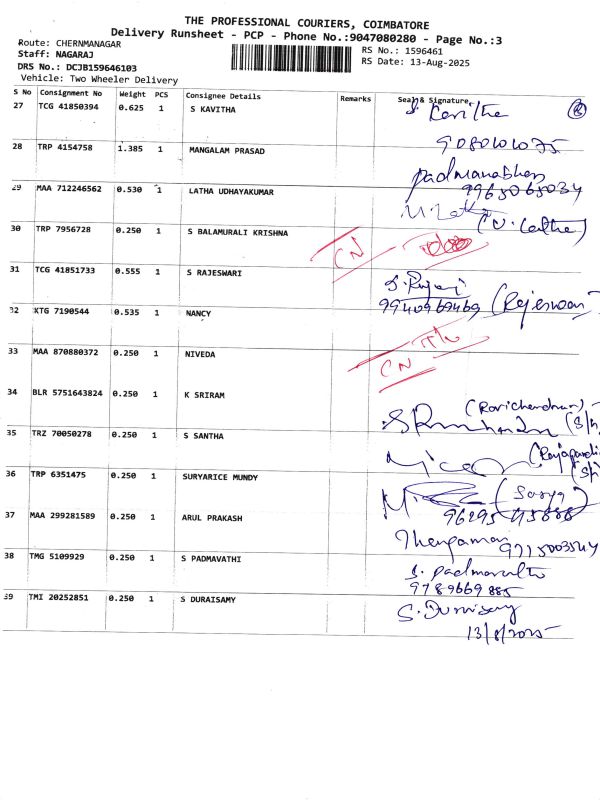 THE PROFESSIONAL COURIERS, COIMBATORE
Delivery Runsheet - PCP - Phone No.:9047080280 - Page No.:3
Route: CHERNMANAGAR
Staff: NAGARAJ
DRS No.: DCJB159646103
Vehicle: Two Wheeler Delivery
RS No.: 1596461
RS Date: 13-Aug-2025
S No Consignment No Weight PCS Consignee Details Remarks Seal & Signature
27 TCG 41850394 0.625 1 S KAVITHA S. Kavitha
9080101075
28 TRP 4154758 1.385 1 MANGALAM PRASAD Padmanabhan
9965065034
29 MAA 712246562 0.530 1 LATHA UDHAYAKUMAR U. Latha (U. Latha)
30 TRP 7956728 0.250 1 S BALAMURALI KRISHNA CN
31 TCG 41851733 0.555 1 S RAJESWARI
9940969469 (Rajeswari)
32 KTG 7190544 0.535 1 NANCY
33 MAA 870880372 0.250 1 NIVEDA CN
34 BLR 5751643824 0.250 1 K SRIRAM (Ravichandran)
35 TRZ 70050278 0.250 1 S SANTHA
36 TRP 6351475 0.250 1 SURYARICE MUNDY (Sasya)
37 MAA 299281589 0.250 1 ARUL PRAKASH Thangaman
38 TMG 5109929 0.250 1 S PADMAVATHI S. Padmavathi
9789669885
39 TMI 20252851 0.250 1 S DURAISAMY S. Duraisamy
13/8/2025